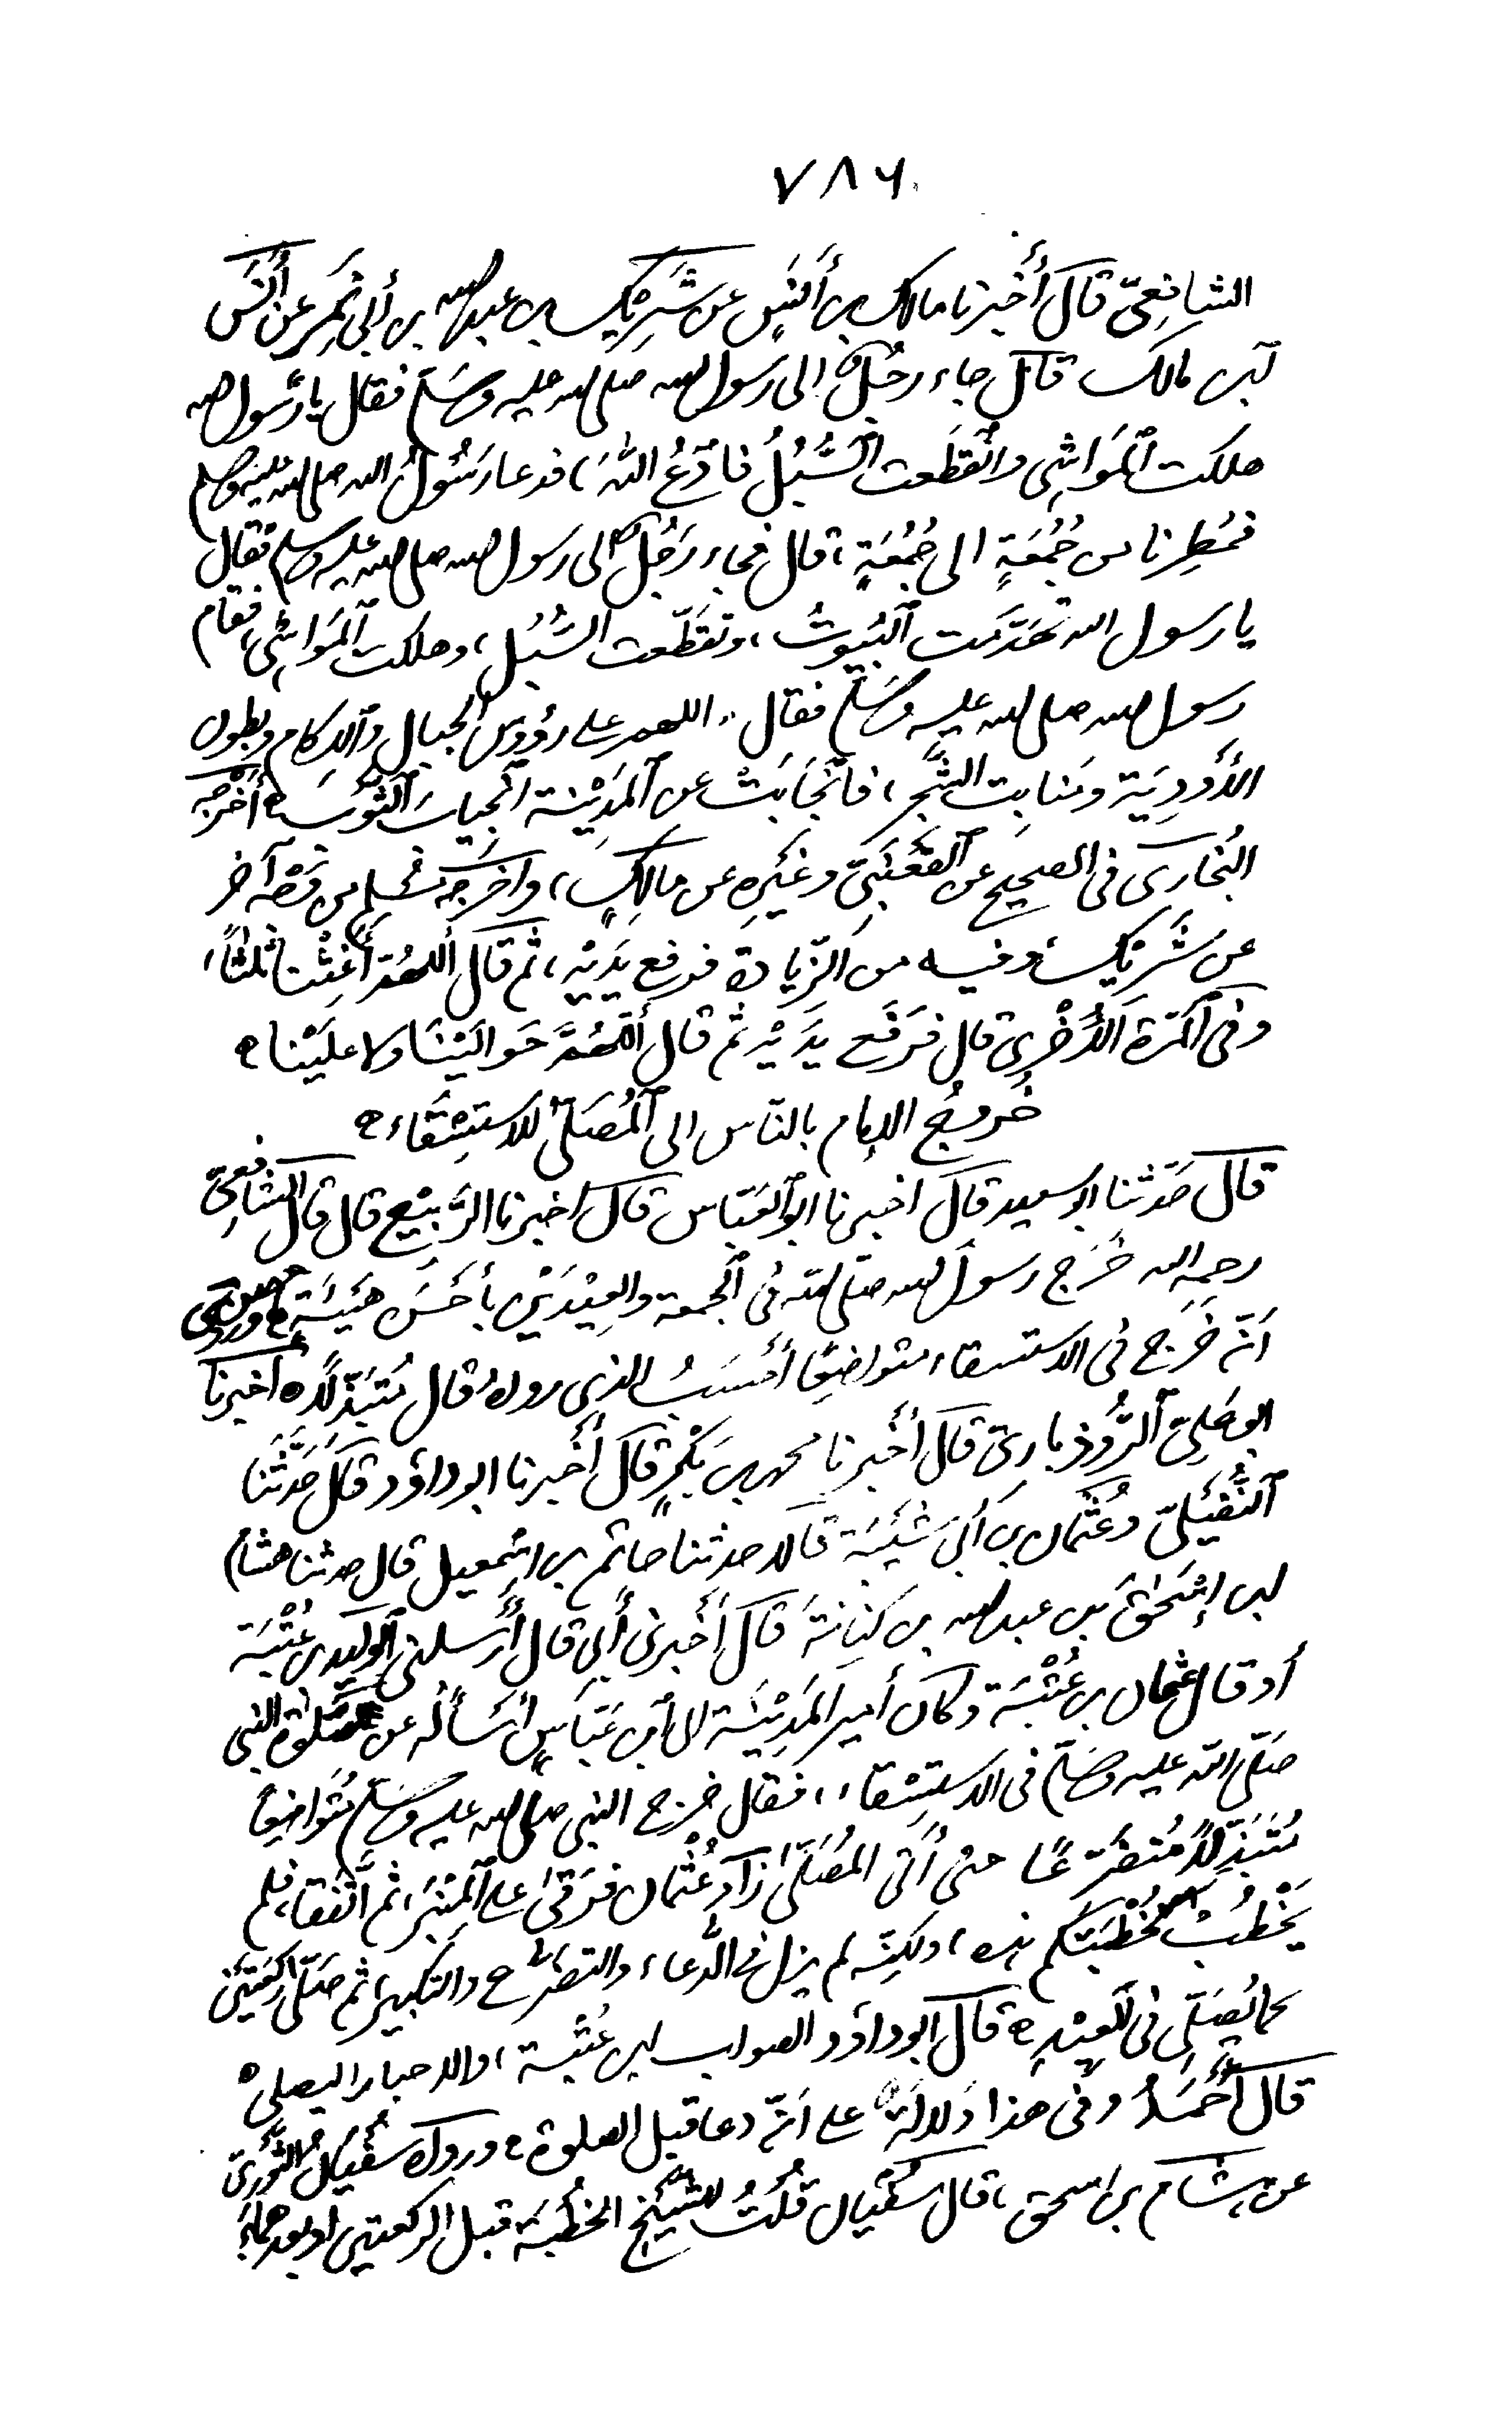 ٧٨٦
الشافِعِيّ قال أَخْبرنا مالك بن أَنَسٍ عن شَرِيْكِ بن عبد الله بن أبي نَمِرٍ عن أَنَس
بن مالك قال جاء رجُلٌ إلى رسول الله صلى الله عليه وسَلَّم فقال يا رَسول الله
هلكت ٱلمَوَاشِي وٱنْقَطَعت ٱلسُّبُلُ فَٱدْعُ اللهَ، فدعا رَسُوْلُ الله صلى الله عليه وسلم
فمُطِرنا من جُمُعَةٍ الى جُمُعَةٍ، قال فجاء رَجُلٌ الى رسول الله صلى الله عليه وسلم فقال
يا رسول الله تهَدَّمت ٱلبُيوتُ، وتقَطَّعت السُّبُل، وهلكت ٱلمَوَاشِي، فقام
رسول الله صلى الله عليه وسَلَّم فقال، اللهم على رؤوس الجبال وٱلاكام وبطون
الأَودِيَة ومَنابِت الشَّجر، فٱنْجَابَتْ عن ٱلمَدِيْنة ٱنجيابَ ٱلثَّوْب ه أَخْرَجه
البُخارى فى الصحيح عن ٱلقَعْنَبِيّ وغَيْرِه عن مالِكٍ، واخرَجه مسلم من وَجْه آخر
عن شَرِيْك وفيه من ٱلزّيادة فرفع يدَيْه، ثم قال أللهُمّ أَغِثْنا ثلثاً،
وفى ٱلمَرّة ٱلأُخْرى قال فرَفَع يدَيْه ثم قال أللهُمَّ حَوالَيْنَا ولا علَيْنا ه
خُروجُ الامام بالنّاس الى ٱلمُصَلّى للاستِسْقَاء ه
قال حَدّثنا ابو سعيد قال اخبرنا ابو ٱلعَبّاس قال اخبرنا الرَّبيْع قال قال الشافِعيّ
رحمه الله خَرَج رسول الله صلّى الله فى ٱلجمعة والعِيْدَيْن بأَحْسَن هَيْئَةٍ وروى
أنّه خَرَج فى الاستسقاء متواضِعًا أَحْسَبُ الذى رواه قال مُتَبَذِّلًا ه أخبرنا
ابو عَلِيّ ٱلرُّوْذبارِيّ قال أَخْبرنا محمد بن بَكْرٍ قال أَخْبرنا ابو داؤد قال حَدَّثَنا
ٱلنُّفَيْلِيّ وعُثْمان بن أَبى شَيْبَة قالا حدثنا حاتم بن اسْمٰعيل قال حدثنا هشام
بن إسْحٰق بن عبد الله بن كِنانَةَ قال أَخْبرنى أَبى قال أَرْسلنى ٱلوليد بن عُتْبَة
أو قال عُثمان بن عُتْبَة وكان أميرَ المَدِيْنَة الى ٱبن عَبّاسٍ أَسْأَلُه عن صَلٰوة النبى
صَلّى الله عليه وسَلّم فى الاستِسْقاء، فقال خرج النبى صلى الله عليه وسَلّم مُتواضِعًا
مُتَبَذِّلًا مُتضَرِّعًا حتى أَتى المُصَلّى زاد عُثْمان فرَقىٰ على ٱلمِنْبَر، ثم اتَّفَقا، فلم
يَخْطُبْ خُطْبتَكم هذه، ولكِنّه لم يزل فى الدُّعاء، والتضَرُّع والتكبير، ثم صَلّى ركعَتَيْن
كما يُصَلِّى فى ٱلعِيْدِ ه قال ابو داؤد الصواب ابن عُتْبة، والاخبار النُفيلى ه
قال أَحْمَدُ وفى هذا دَلالَةٌ على أنّه دعا قبل الصلوة ه ورواه سُفْيان الثَّوْرِىّ
عن هشام بن اسحق، قال سُفْيان قُلْتُ للشيْخ الخُطْبَة قبل الركعتين او بعدهما؟